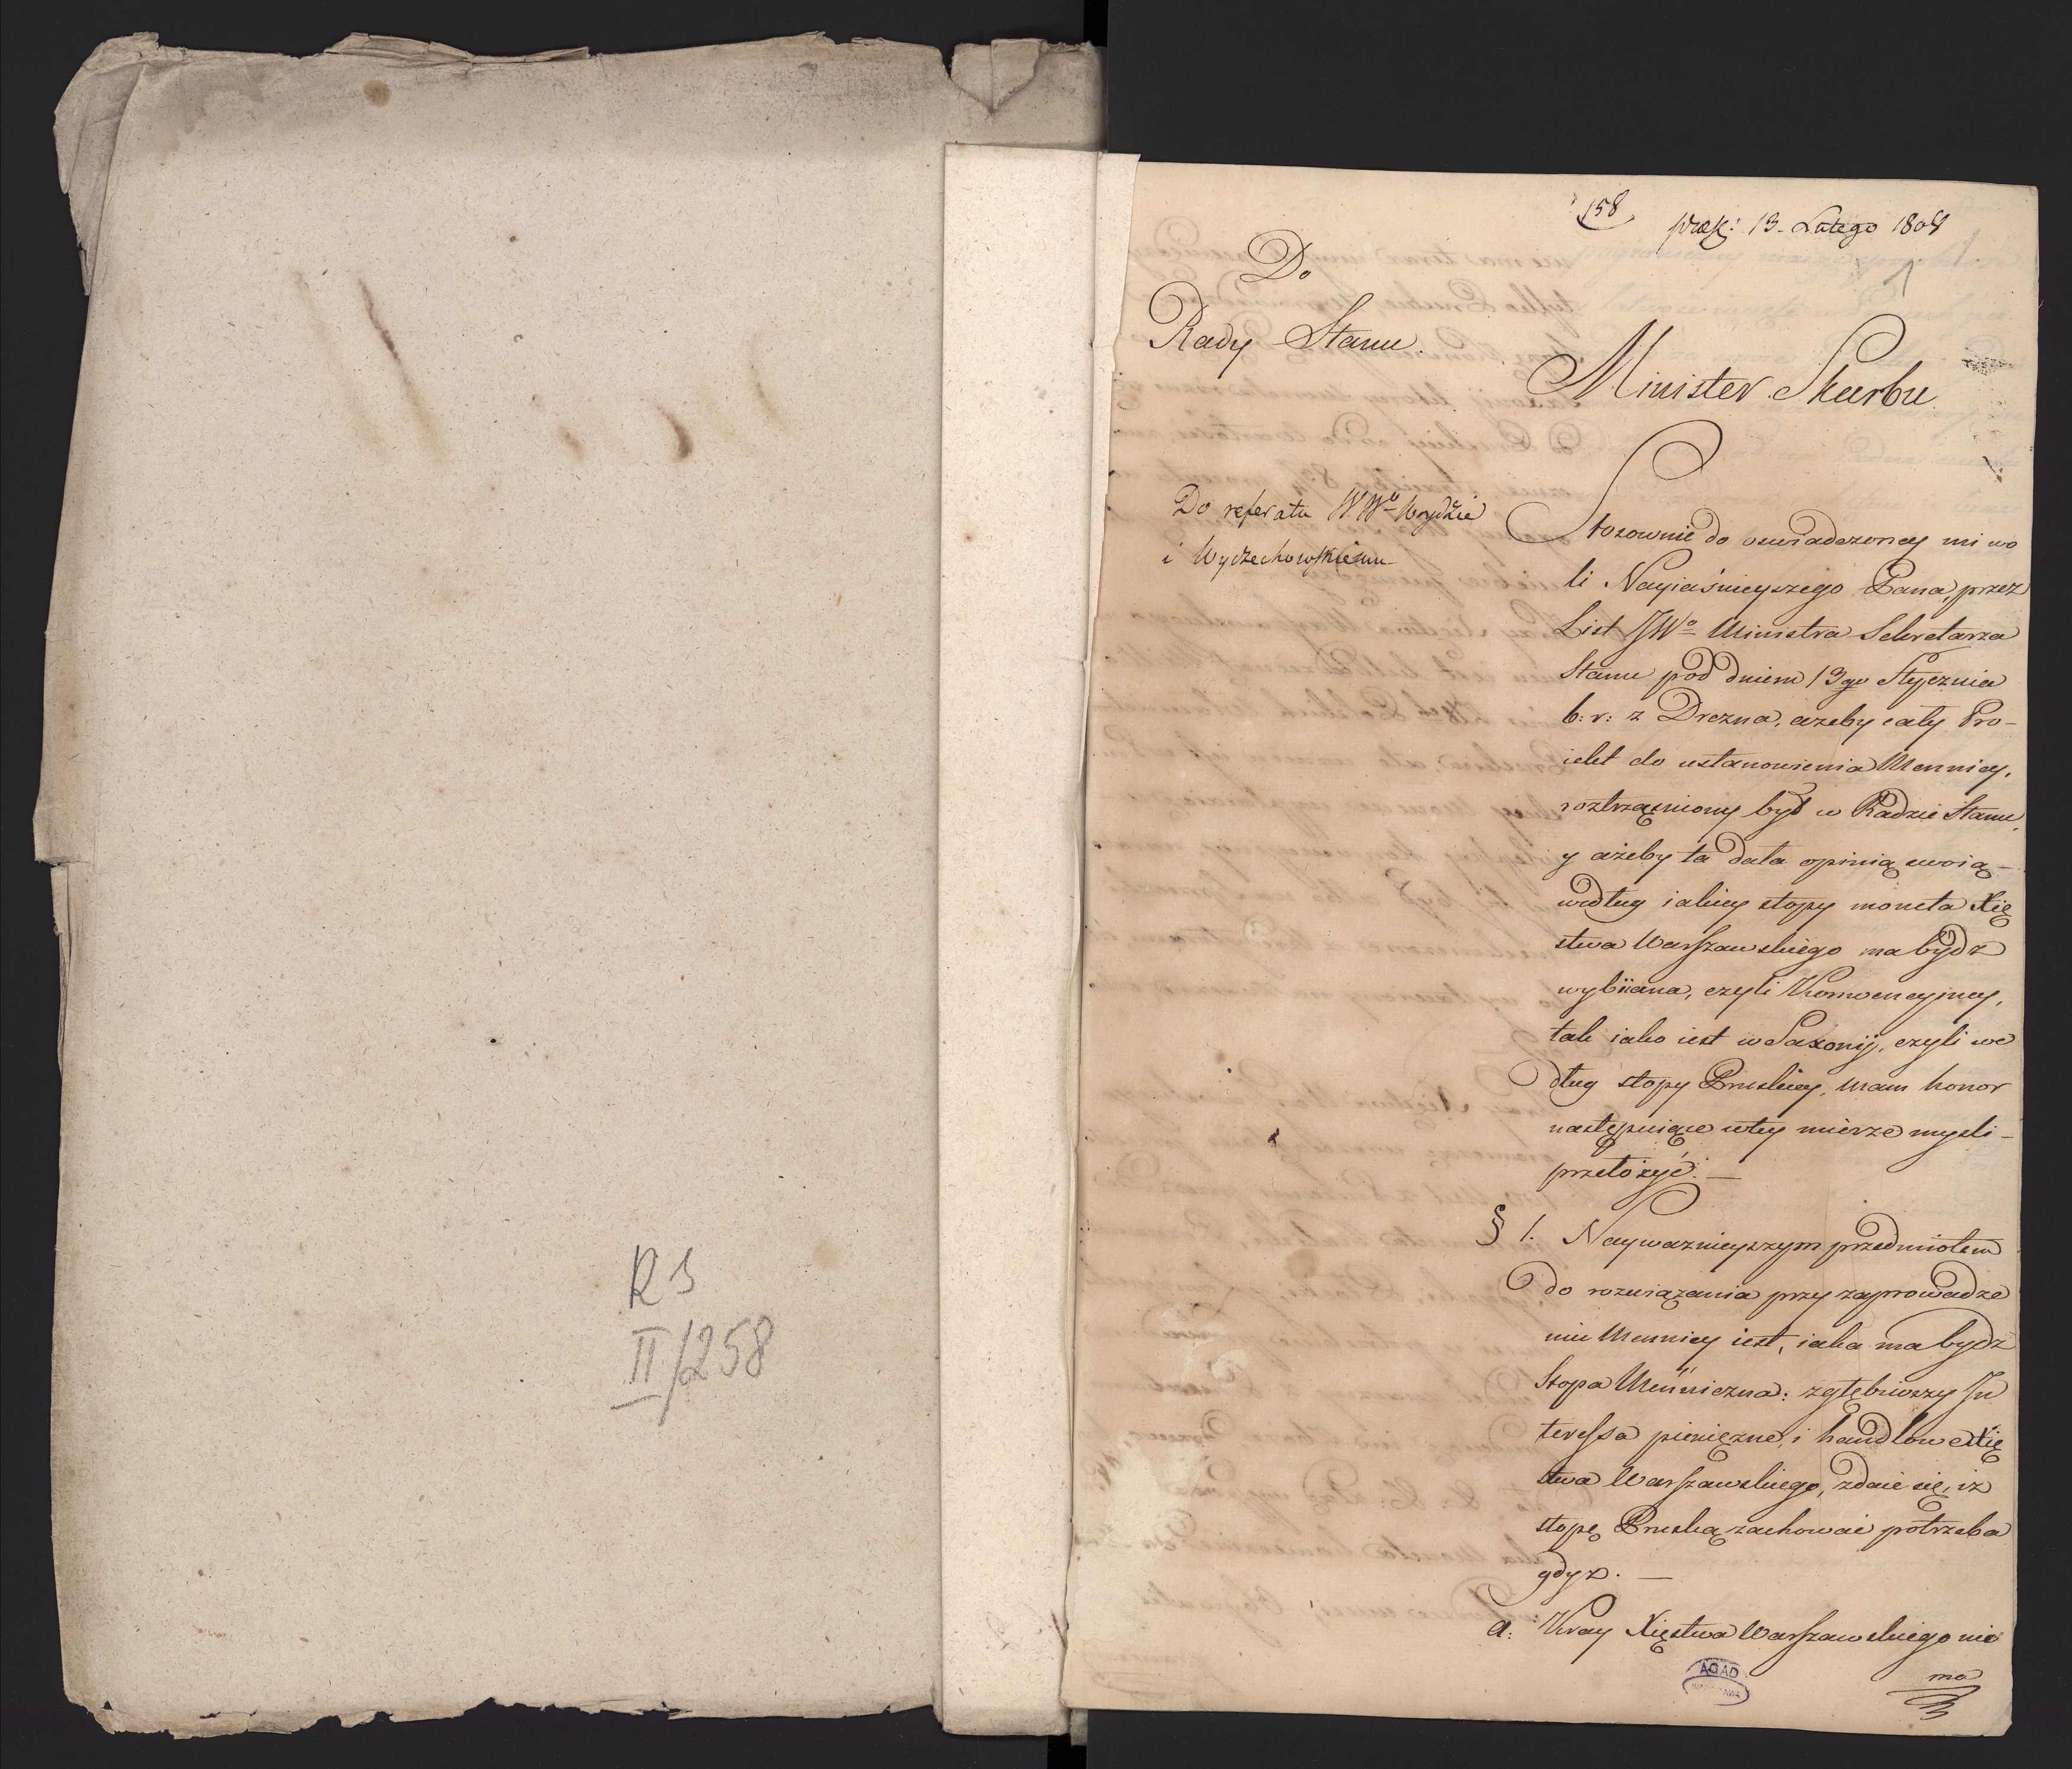 R S
II/258
158
præs: 13. Lutego 1808
1
Do
Rady Stanu.
Minister Skarbu
Do referatu WWo Woydzie
i Wyczechowskiemu
Stosownie do oswiadczoney mi wo
li Nayiaśnieyszego Pana, przez
List JWo Ministra Sekretarza
Stanu pod dniem 13go Stycznia
b: r: z Drezna, ażeby cały Pro-
iekt do ustanowienia Mennicy,
roztrząśniony był w Radzie Stanu,
y ażeby ta dała opinią swoią
według iakiey stopy moneta Xię
stwa Warszawskiego ma bydz
wybiiana, czyli Konwencyiney,
tak iako iest w Saxonij, czyli we
dług stopy Pruskiey, mam honor
następuiące w tey mierze mysli
przełożyć. —
§ 1. Naywaznieyszym przedmiotem
do rozwiązania przy zaprowadze
niu Mennicy iest, iaka ma bydz
Stopa Menniczna: zgłębiwszy In
teressa pienięzne, i handlowe Xię
stwa Warszawskiego, zdaie się, iz
stopę Pruską zachować potrzeba
gdyz. —
a: Kray Xięstwa Warszawskiego nie
ma
AGAD
WARSZAWA